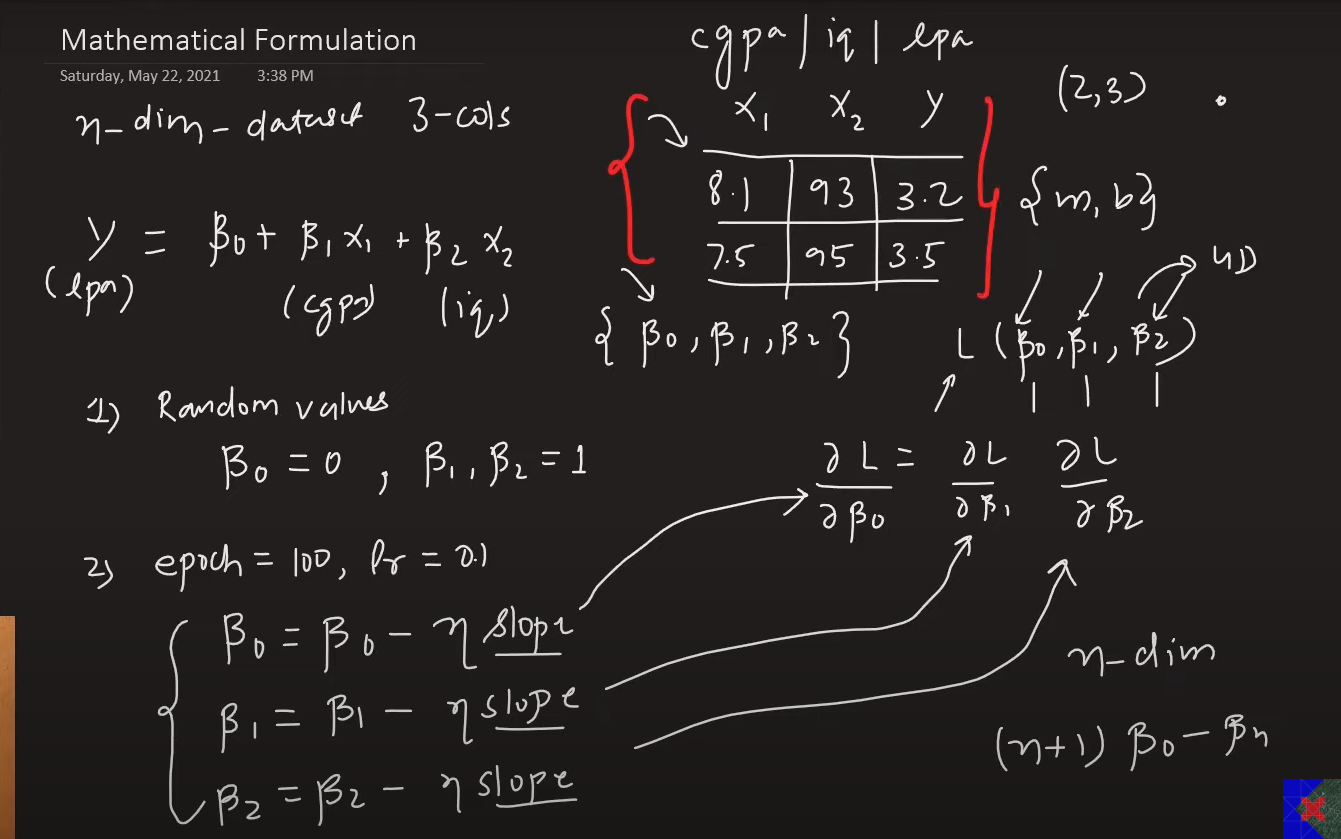 Mathematical Formulation
Saturday, May 22, 2021 3:38 PM
n-dim-dataset 3-cols
cgpa | iq | lpa
x₁ x₂ y
8.1 93 3.2
7.5 95 3.5
(2,3)
{m, b}
y = β₀ + β₁ x₁ + β₂ x₂
(lpa) (cgpa) (iq)
{ β₀, β₁, β₂ }
4D
L (β₀, β₁, β₂)
1) Random values
β₀ = 0 , β₁, β₂ = 1
∂L/∂β₀ = ∂L/∂β₁ ∂L/∂β₂
2) epoch = 100, lr = 0.1
β₀ = β₀ - η slope
β₁ = β₁ - η slope
β₂ = β₂ - η slope
n-dim
(n+1) β₀ - βn